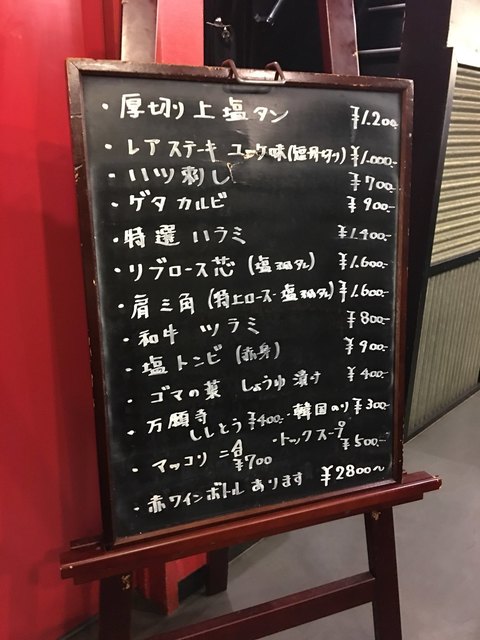 ・厚切り上塩タン ¥1.200-
・レアステーキ ユッケ味(短冊切り) ¥1.000-
・ハツ刺し ¥700-
・ゲタカルビ ¥900-
・特選ハラミ ¥1.400-
・リブロース芯 (塩orタレ) ¥1.600-
・肩三角 (特上ロース・塩orタレ) ¥1.600-
・和牛 ツラミ ¥800-
・塩トンビ (赤身) ¥900-
・ゴマの葉 しょうゆ漬け ¥400-
・万願寺ししとう ¥400- ・韓国のり ¥300-
・マッコリ 二合 ¥700 ・トックスープ ¥500-
・赤ワインボトルあります ¥2800〜